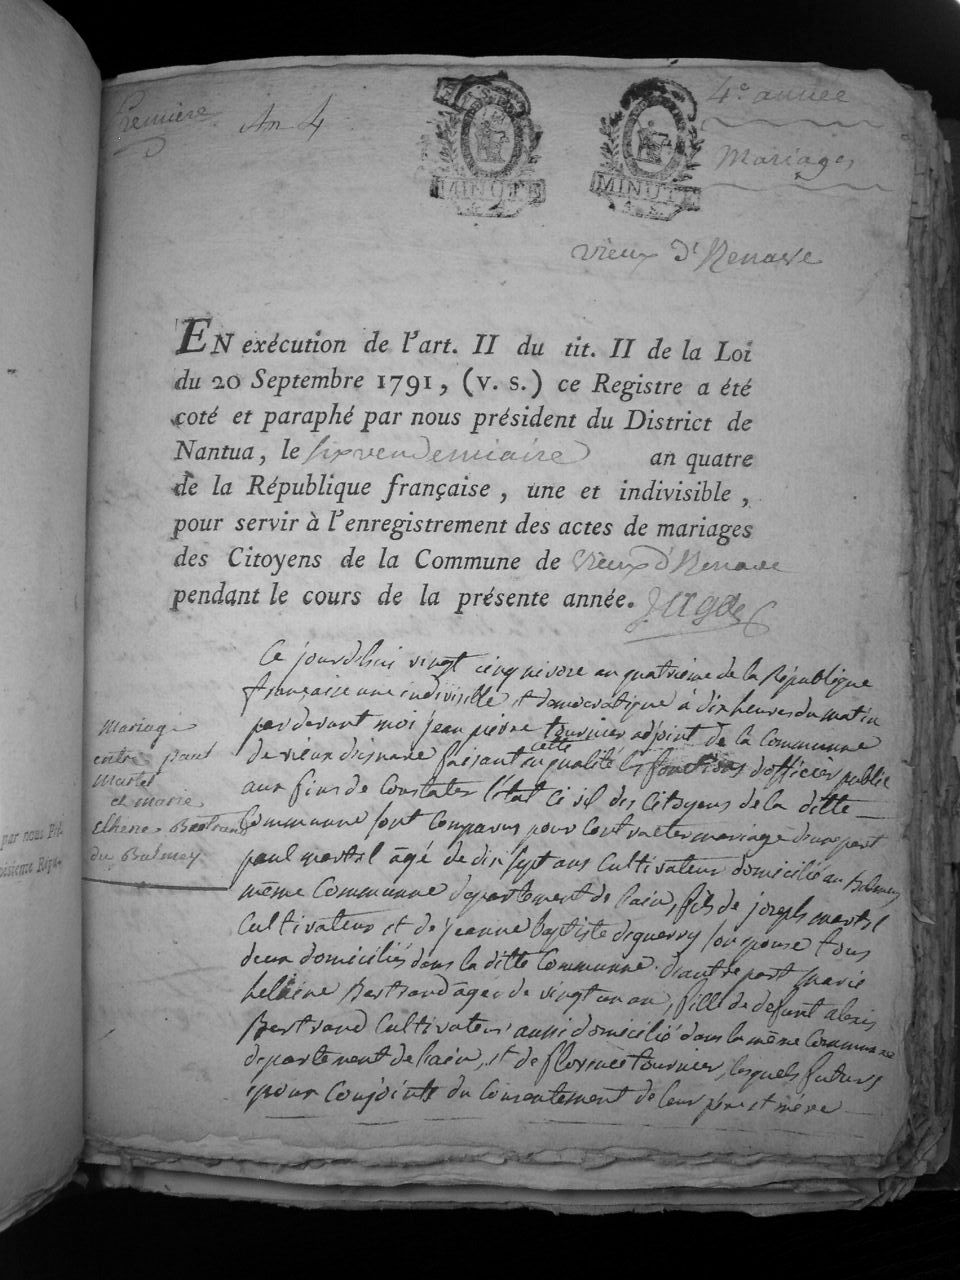 Première
An 4
MINUT
MINUT
4e année
Mariages
vieux d'Renave
EN exécution de l'art. II du tit. II de la Loi
du 20 Septembre 1791, (V. S.) ce Registre a été
coté et paraphé par nous président du District de
Nantua, le six vendemiaire an quatre
de la République française, une et indivisible,
pour servir à l'enregistrement des actes de mariages
des Citoyens de la Commune de vieux d'Renave
pendant le cours de la présente année.
Ce jourdhui vingt cinq nivose an quatrieme de la République
francaise une indivisible et democratique à dix heures du matin
par devant moi jean pierre tournier adjoint de la Commune
de vieux disnave faisant en cette qualité les fonctions d'officier public
aux fins de constater l'état civil des Citoyens de la ditte
Commune sont comparus pour contracter mariage d'une part
paul martel âgé de dix sept ans cultivateur domicilié au Balmay
même Commune departement de l'ain, fils de joseph martel
Cultivateur et de jeanne baptiste deguerry son epouse tous
deux domiciliés dans la ditte Commune. d'autre part marie
helaine Bertrand âgee de vingt un an, fille de defunt alexis
Bertrand Cultivateur aussi domicilié dans la même Commune
departement de l'ain, et de florence tournier, lesquels futurs
epoux conjoints du consentement de leur père et mère
Mariage
entre paul
Martel
et marie
Elhene Bertrand
du Balmay
par nous